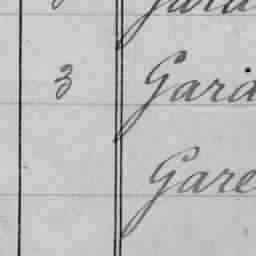 3 Gara
Gare